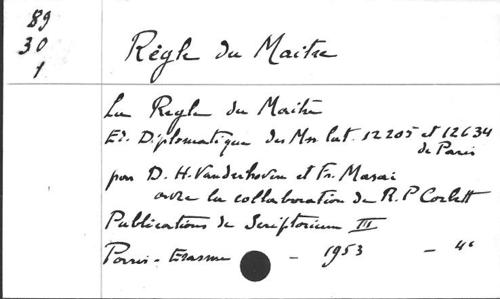 89
30
1
Règle du Maitre
La Regle du Maitre
Ed. Diplomatique des Mss lat. 12205 et 12634
de Paris
par D. H. Vanderhoven et Fr. Masai
avec la collaboration de R. P Corbett
Publications de Scriptorium III
Paris - Erasme - 1953 - 4°